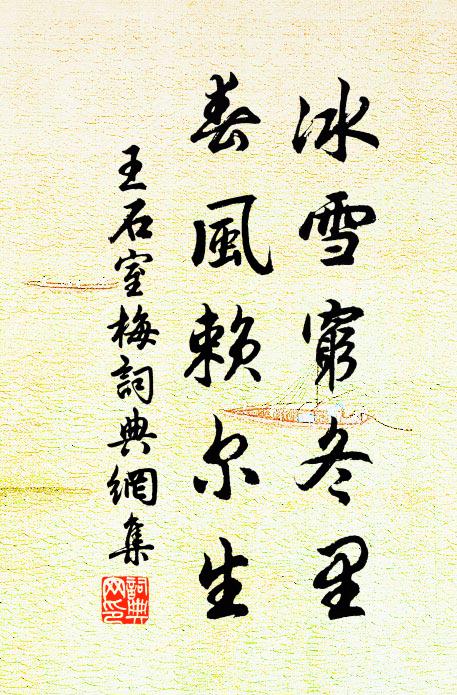 冰雪窮冬里
春風賴尔生
王石室梅詞典網集
詞典网印